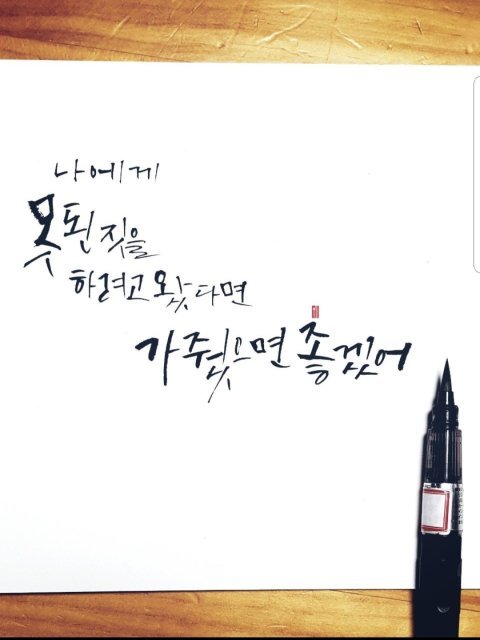 나에게
못된 짓을
하려고 왔다면
가줬으면 좋겠어